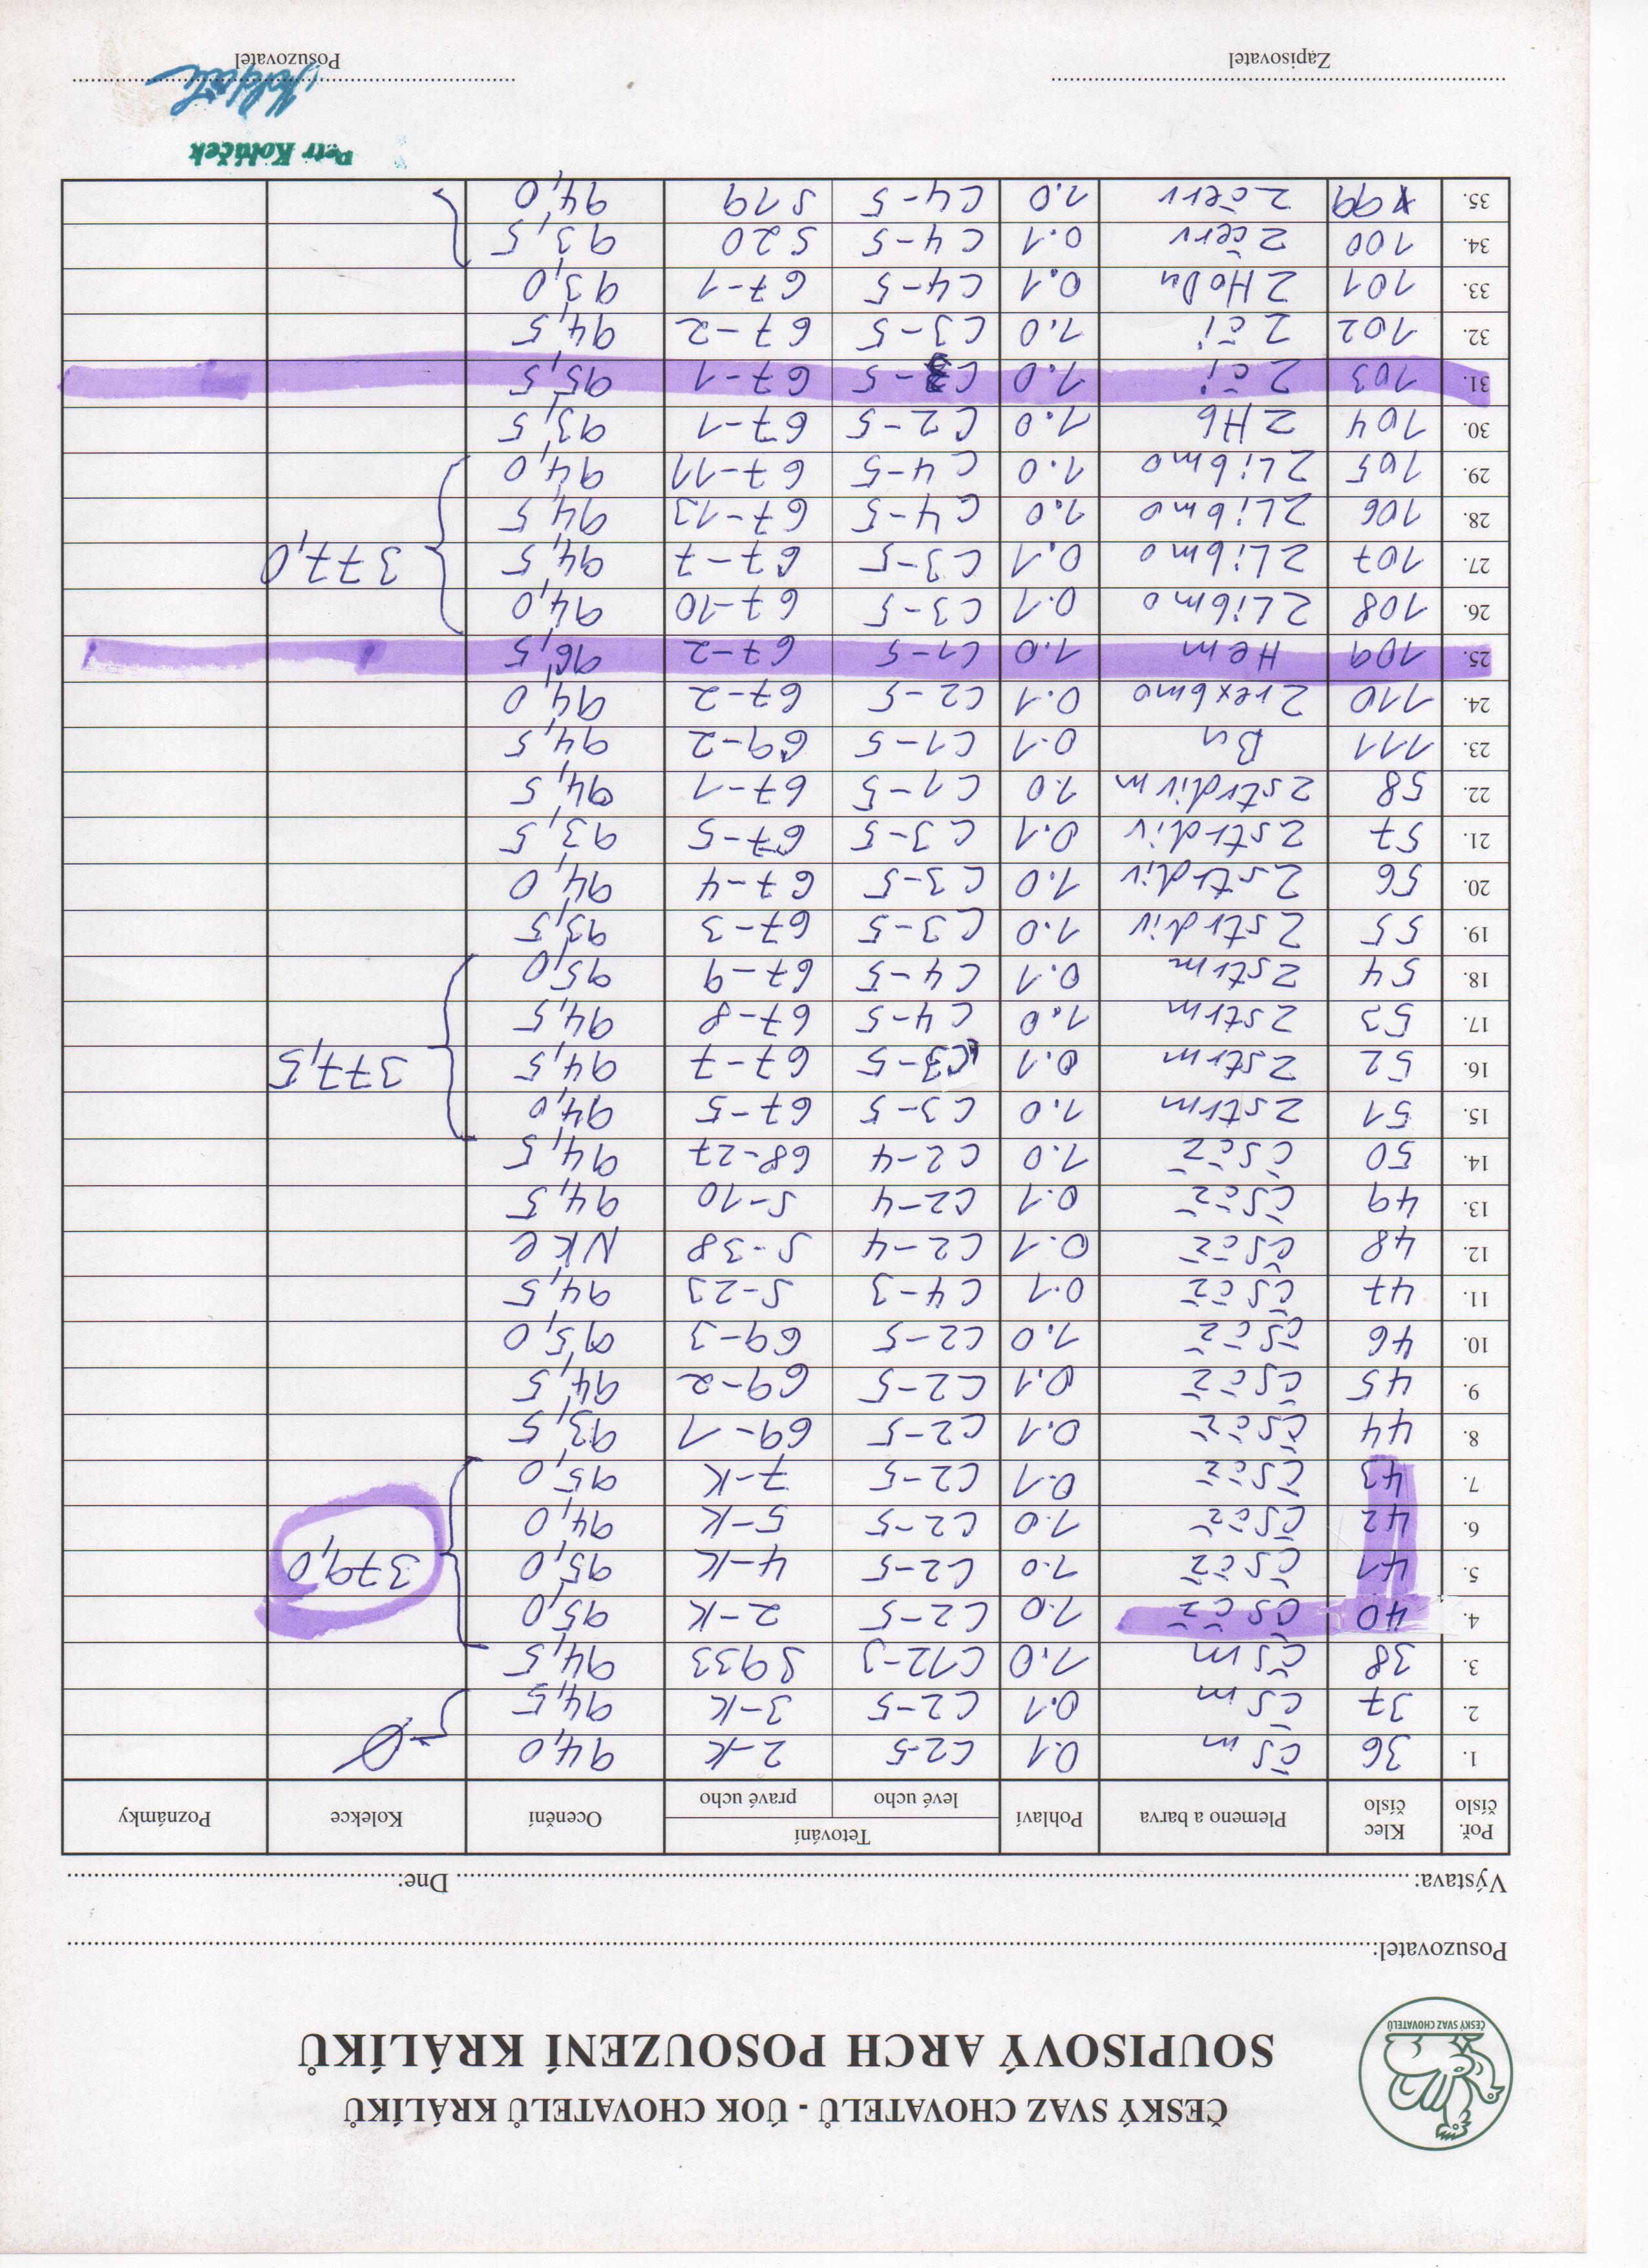 ČESKÝ SVAZ CHOVATELŮ - ÚOK CHOVATELŮ KRÁLÍKŮ
SOUPISOVÝ ARCH POSOUZENÍ KRÁLÍKŮ
ČESKÝ SVAZ CHOVATELŮ
Posuzovatel:
Výstava: Dne:
Poř. číslo Klec číslo Plemeno a barva Pohlaví Tetování levé ucho pravé ucho Ocenění Kolekce Poznámky
1. 36 čsm 0.1 C2-5 2-K 94,0 Ø
2. 37 čsm 0.1 C2-5 3-K 94,5
3. 38 čsm 1.0 C12-3 S933 94,5
4. 40 čsčž 1.0 C2-5 2-K 95,0
5. 41 čsčž 1.0 C2-5 4-K 95,0 379,0
6. 42 čsčž 1.0 C2-5 5-K 94,0
7. 43 čsčž 0.1 C2-5 7-K 95,0
8. 44 čsčž 0.1 C2-5 69-1 93,5
9. 45 čsčž 0.1 C2-5 69-2 94,5
10. 46 čsčž 1.0 C2-5 69-3 95,0
11. 47 čsčž 0.1 C4-3 S-23 94,5
12. 48 čsčž 0.1 C2-4 S-38 Nkl
13. 49 čsčž 0.1 C2-4 S-10 94,5
14. 50 čsčž 1.0 C2-4 68-27 94,5
15. 51 Zstrm 1.0 C3-5 67-5 94,0
16. 52 Zstrm 0.1 C3-5 67-7 94,5 377,5
17. 53 Zstrm 1.0 C4-5 67-8 94,5
18. 54 Zstrm 0.1 C4-5 67-9 95,0
19. 55 Zstrdiv 1.0 C3-5 67-3 93,5
20. 56 Zstrdiv 1.0 C3-5 67-4 94,0
21. 57 Zstrdiv 0.1 C3-5 67-5 93,5
22. 58 Zstrdivm 1.0 C1-5 67-1 94,5
23. 111 Bu 0.1 C1-5 69-2 94,5
24. 110 Zrexbmo 0.1 C2-5 67-2 94,0
25. 109 Hem 1.0 C1-5 67-2 96,5
26. 108 ZLibmo 0.1 C3-5 67-10 94,0
27. 107 ZLibmo 0.1 C3-5 67-7 94,5 377,0
28. 106 ZLibmo 1.0 C4-5 67-13 94,5
29. 105 ZLibmo 1.0 C4-5 67-11 94,0
30. 104 ZHb 1.0 C2-5 67-1 93,5
31. 103 Zči 1.0 C3-5 67-1 95,5
32. 102 Zči 1.0 C3-5 67-2 94,5
33. 101 ZHoDu 0.1 C4-5 67-1 93,0
34. 100 Zčerv 0.1 C4-5 S20 93,5
35. 99 Zčerv 1.0 C4-5 S19 94,0
Petr Koláček
Zapisovatel Posuzovatel